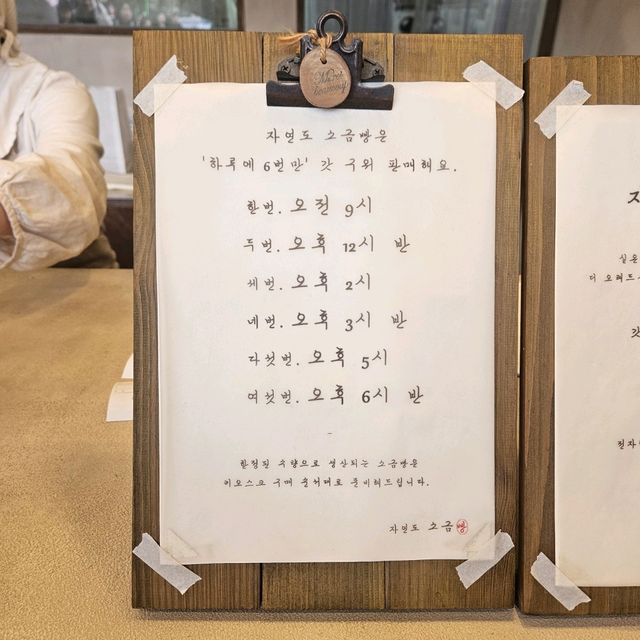 자연도 소금빵은
'하루에 6번만' 갓 구워 판매해요.
한번. 오전 9시
두번. 오후 12시 반
세번. 오후 2시
네번. 오후 3시 반
다섯번. 오후 5시
여섯번. 오후 6시 반
-
한정된 수량으로 생산되는 소금빵은
키오스크 구매 순서대로 준비해드립니다.
자연도 소금빵
실온
더 오래도
갓